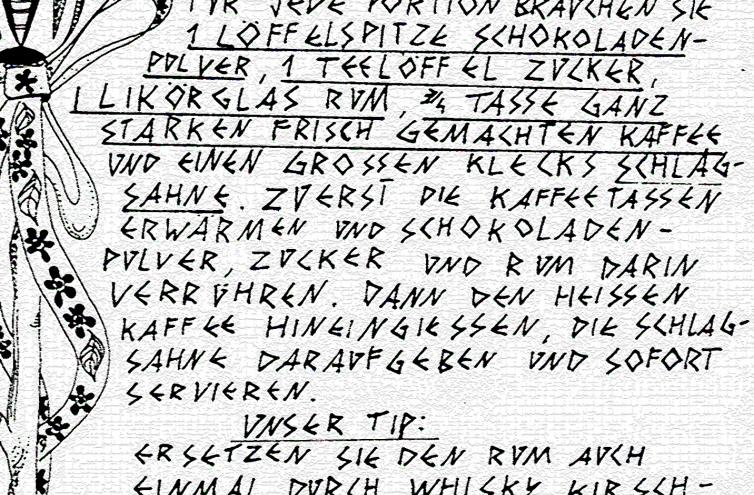 FÜR JEDE PORTION BRAUCHEN SIE
1 LÖFFELSPITZE SCHOKOLADEN-
PULVER, 1 TEELÖFFEL ZUCKER,
1 LIKÖRGLAS RUM, 3/4 TASSE GANZ
STARKEN FRISCH GEMACHTEN KAFFEE
UND EINEN GROSSEN KLECKS SCHLAG-
SAHNE. ZUERST DIE KAFFEETASSEN
ERWÄRMEN UND SCHOKOLADEN-
PULVER, ZUCKER UND RUM DARIN
VERRÜHREN. DANN DEN HEISSEN
KAFFEE HINEINGIESSEN, DIE SCHLAG-
SAHNE DARAUFGEBEN UND SOFORT
SERVIEREN.
UNSER TIP:
ERSETZEN SIE DEN RUM AUCH
EINMAL DURCH WHISKY, KIRSCH-